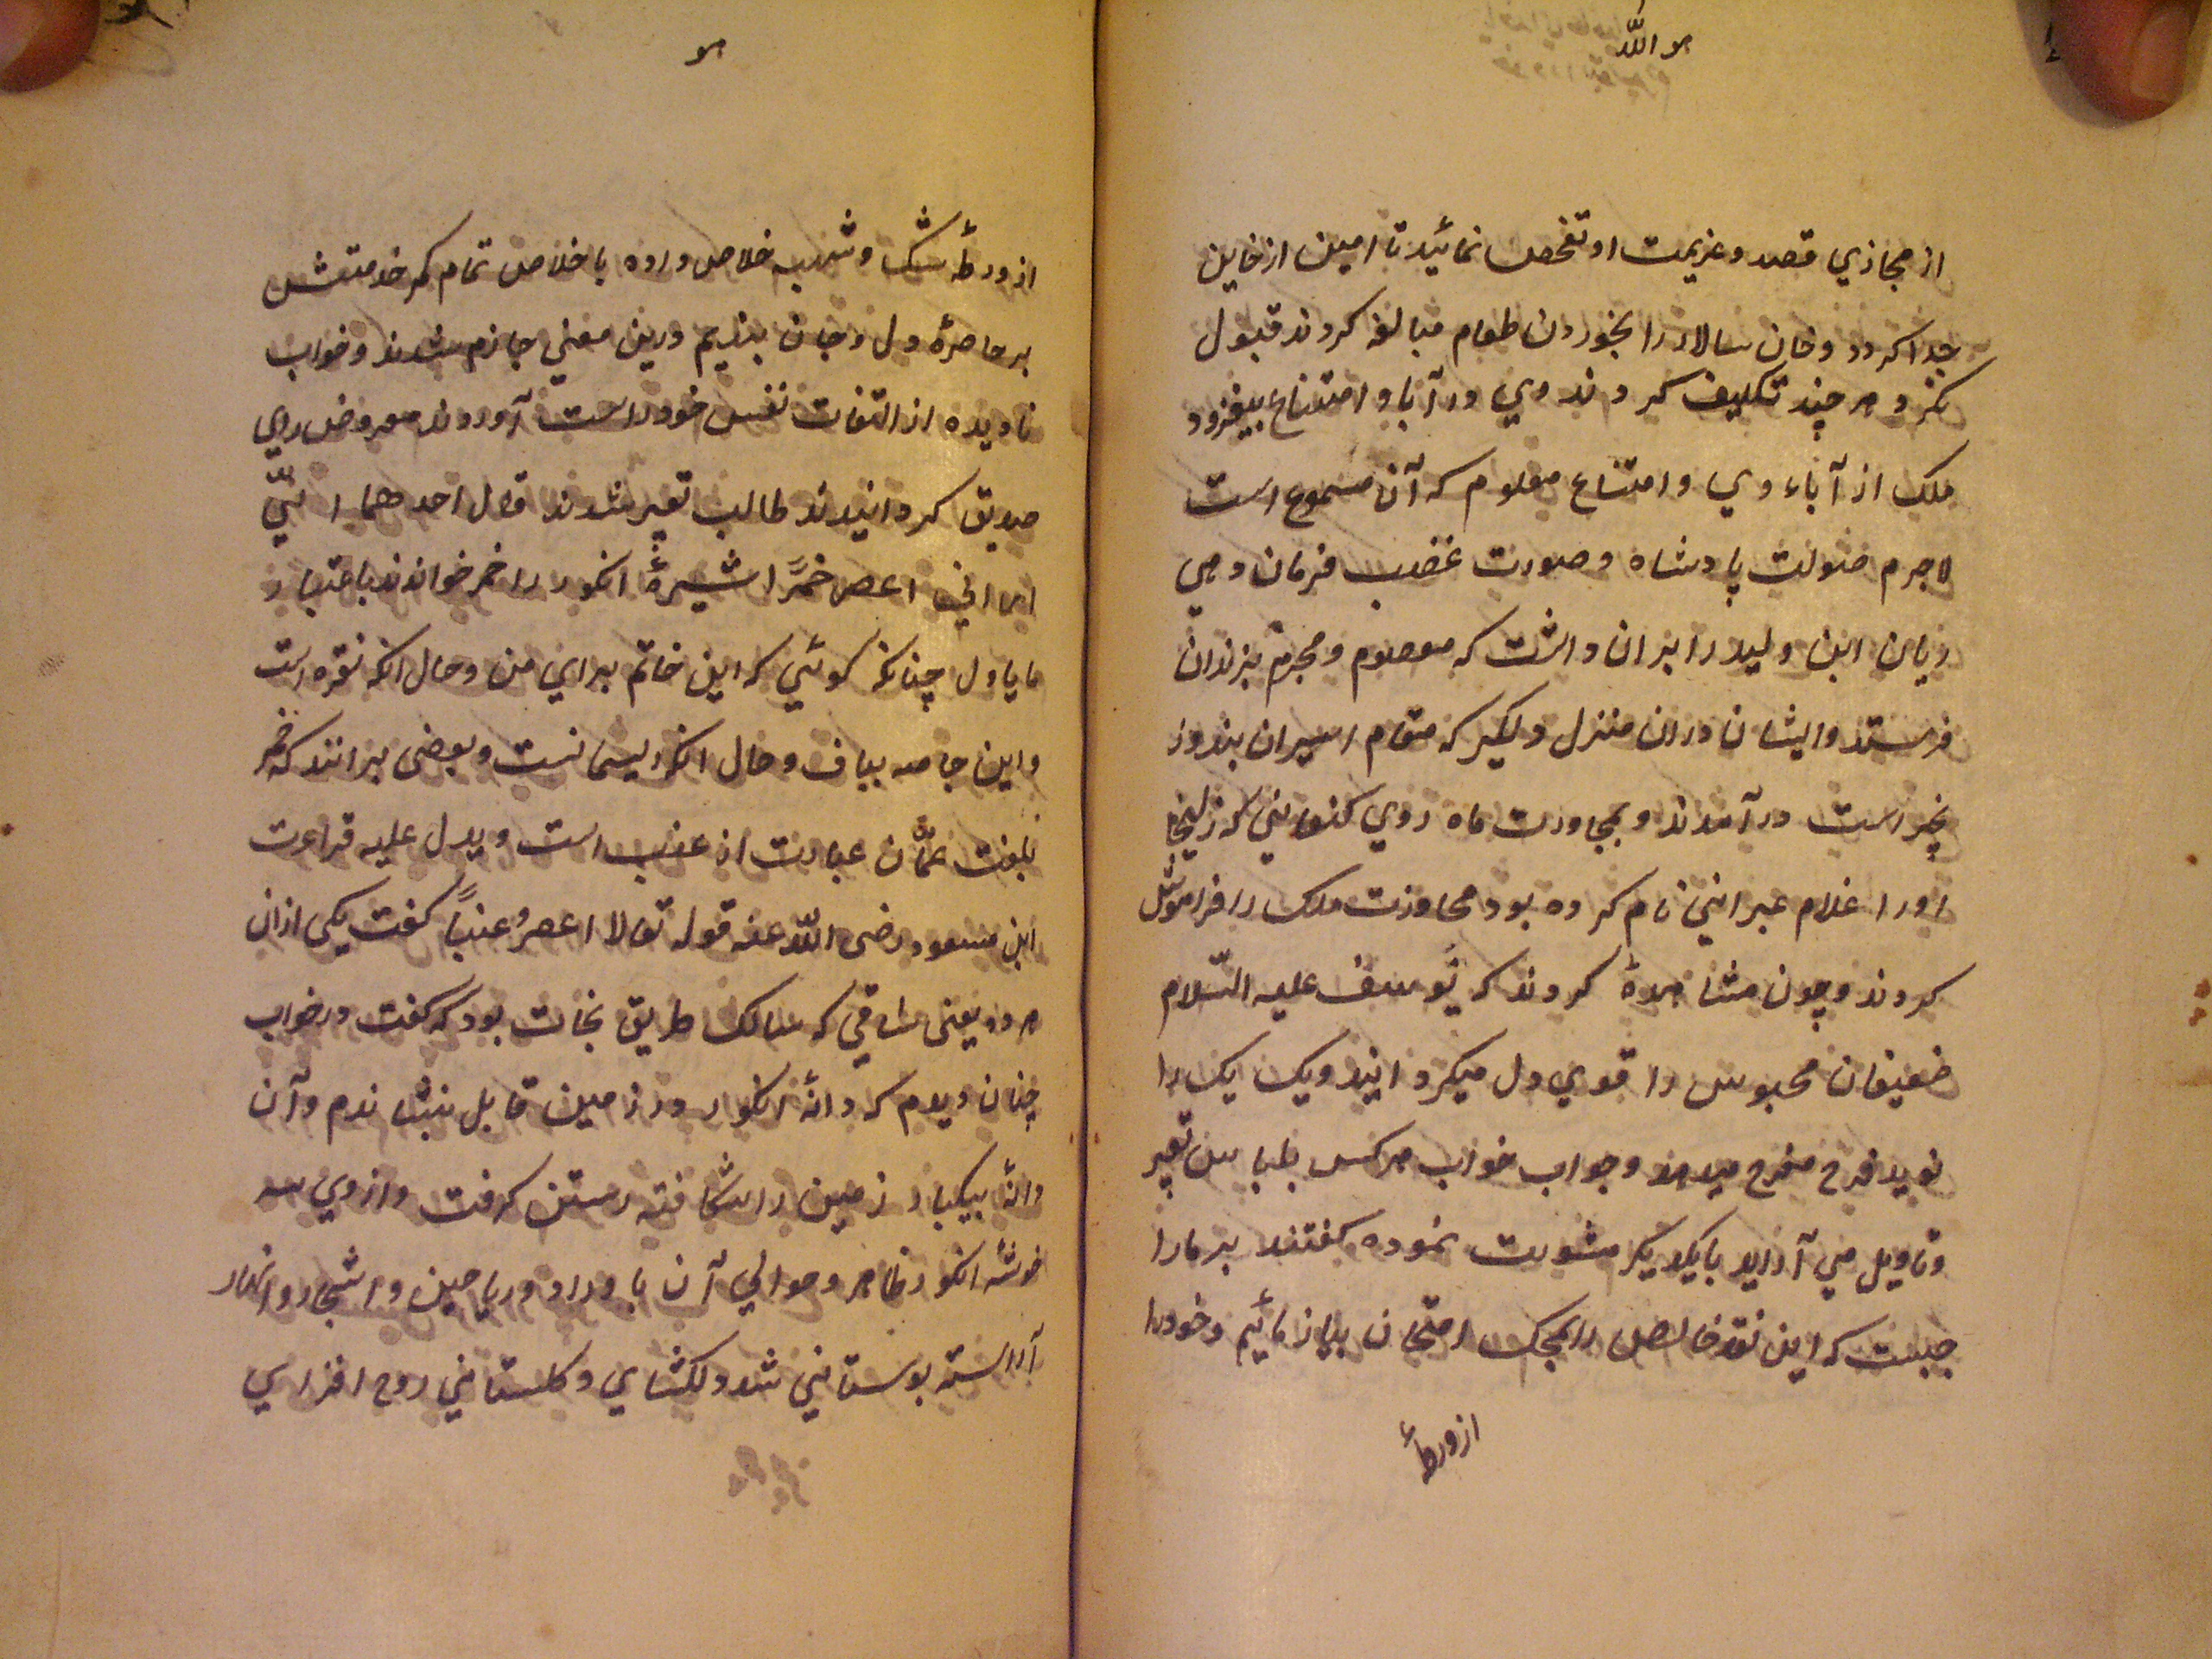 هو الله
از مجازي قصد و عزيمت او تفحص نمائيد تا امين از خاين
جدا كردد و خان سالار را بخوردن طعام مبالغه كردند قبول
نكرد هر چند تكليف كردند وي در آبا و امتناع بيفزود
ملك از آباء وي و امتناع معلوم كه آن مسموع است
لاجرم صولت پادشاه و صورت غضب فرمان دهي
ريان ابن وليد را بران داشت كه معصوم و مجرم بزندان
فرستد و ايشان دران منزل دلكير كه مقام اسيران بندوز
نچيراست در آمدند و بمجاورت ماه روي كنعاني كه زليخا
او را غلام عبراني نام كرده بود مجاورت ملك را فراموش
كردند و چون مشاهدهٔ كردند كه يوسف عليه السّلام
ضعيفان محبوس را قوي دل ميكرداند و يك يك را
نويد فرح مفرح ميدهد و جواب خواب هر كس بلباس تعبير
و تاويل مي آرايد با يكديكر مشورت نموده كفتند بر ما را
جبلت كه اين نقد خالص را بمحك امتحان بيازمائيم و خود را
از ورطهٔ
هو
از ورطهٔ شك و شبهه خلاص داده باخلاص تمام كمر خدمتش
بر خاصرهٔ دل و جان بنديم درين معني جازم شدند و خواب
ناديده از التفات نفس خود راست آوردند معروض راي
صديق كردانيدند طالب تعبير شدند قال احدهما انّي
اراني اعصر خمرًا شيرهٔ انكور را خمر خواندند باعتبار
ما ياول چنانكه كوئي كه اين خاتم براي من و حال انكه نقره است
و اين جامه بباف و حال انكه ريسمانست و بعضى برانند كه خمر
بلغت عمّان عبارت از عنب است و يدل عليه قراءت
ابن مسعود رضى الله عنه قوله تعالا اعصرُ عنباً كفت يكى ازان
هر دو يعنى ساقي كه سالك طريق نجات بود كه كفت در خواب
چنان ديدم كه دانهٔ انكور در زمين قابل بنشاندم و آن
دانهٔ بيكبار زمين را شكافته رستن كرفت و از وي سه
خوشه انكور ظاهر و حوالي آن باوراد و رياحين و اشجار و انهار
آراسته بوستاني شد دلكشاي و كلستاني روح افزاي